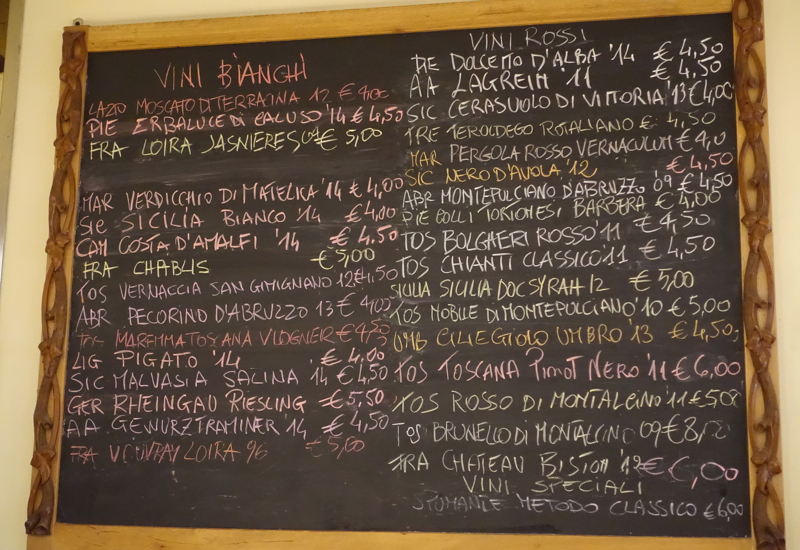 VINI BIANCHI
LAZIO MOSCATO DI TERRACINA 12 € 4,00
PIE ERBALUCE DI CALUSO '14 € 4,50
FRA LOIRA JASNIERES 09 € 5,00
MAR VERDICCHIO DI MATELICA '14 € 4,00
SIC SICILIA BIANCO '14 € 4,00
CAM COSTA D'AMALFI '14 € 4.50
FRA CHABLIS € 5,00
TOS VERNACCIA SAN GIMIGNANO 12 € 4,50
ABR PECORINO D'ABRUZZO 13 € 4,00
TOS MAREMMA TOSCANA VIOGNER € 4,50
LIG PIGATO '14 € 4,00
SIC MALVASIA SALINA 14 € 4,50
GER RHEINGAU RIESLING € 5,50
AA GEWURZTRAMINER '14 € 4,50
FRA VOUVRAY LOIRA 96 € 5,00
VINI ROSSI
PIE DOLCETTO D'ALBA '14 € 4,50
AA LAGREIN '11 € 4,50
SIC CERASUOLO DI VITTORIA '13 € 4,00
TRE TEROLDEGO ROTALIANO € 4,50
MAR PERGOLA ROSSO VERNACULUM € 4,0
SIC NERO D'AVOLA '12 € 4,50
ABR MONTEPULCIANO D'ABRUZZO '09 € 4,50
PIE COLLI TORTONESI BARBERA € 4,00
TOS BOLGHERI ROSSO '11 € 4,50
TOS CHIANTI CLASSICO 11 € 4,50
SICILIA SICILIA DOC SYRAH 12 € 5,00
TOS NOBILE DI MONTEPULCIANO '10 € 5,00
UMB CILIEGIOLO UMBRO '13 € 4,50
TOS TOSCANA PINOT NERO '11 € 6,00
TOS ROSSO DI MONTALCINO '11 € 5,00
TOS BRUNELLO DI MONTALCINO 09 € 8,00
FRA CHATEAU € 6,00
VINI SPECIALI
SPUMANTE METODO CLASSICO € 6,00